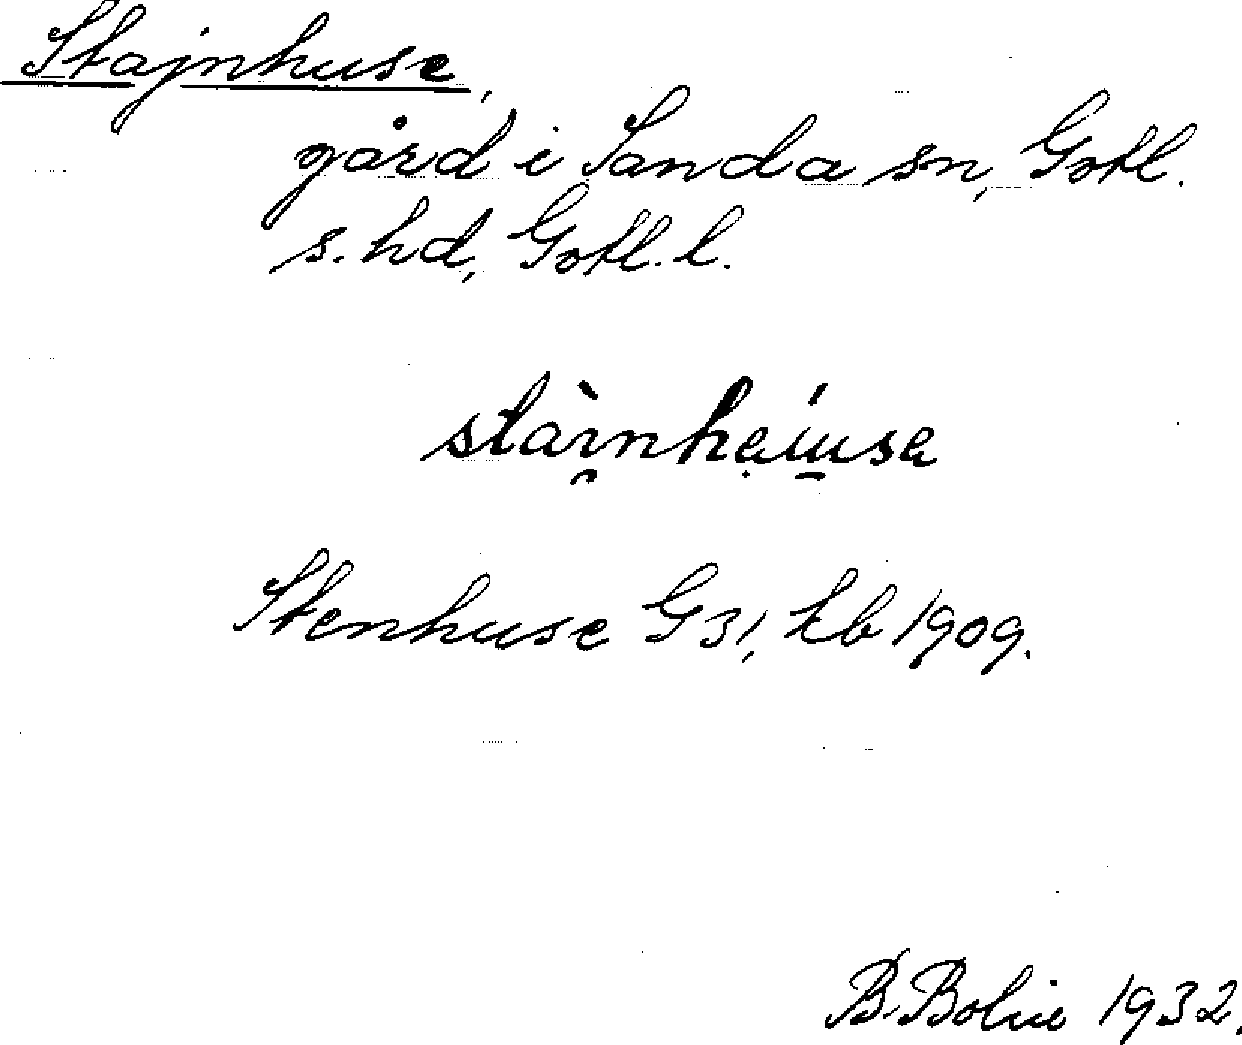 Stajnhuse,
gård i Sanda sn, Gotl.
s. hd, Gotl. l.
Stenhuse G 31, tb 1909.
B. Bolin 1932.